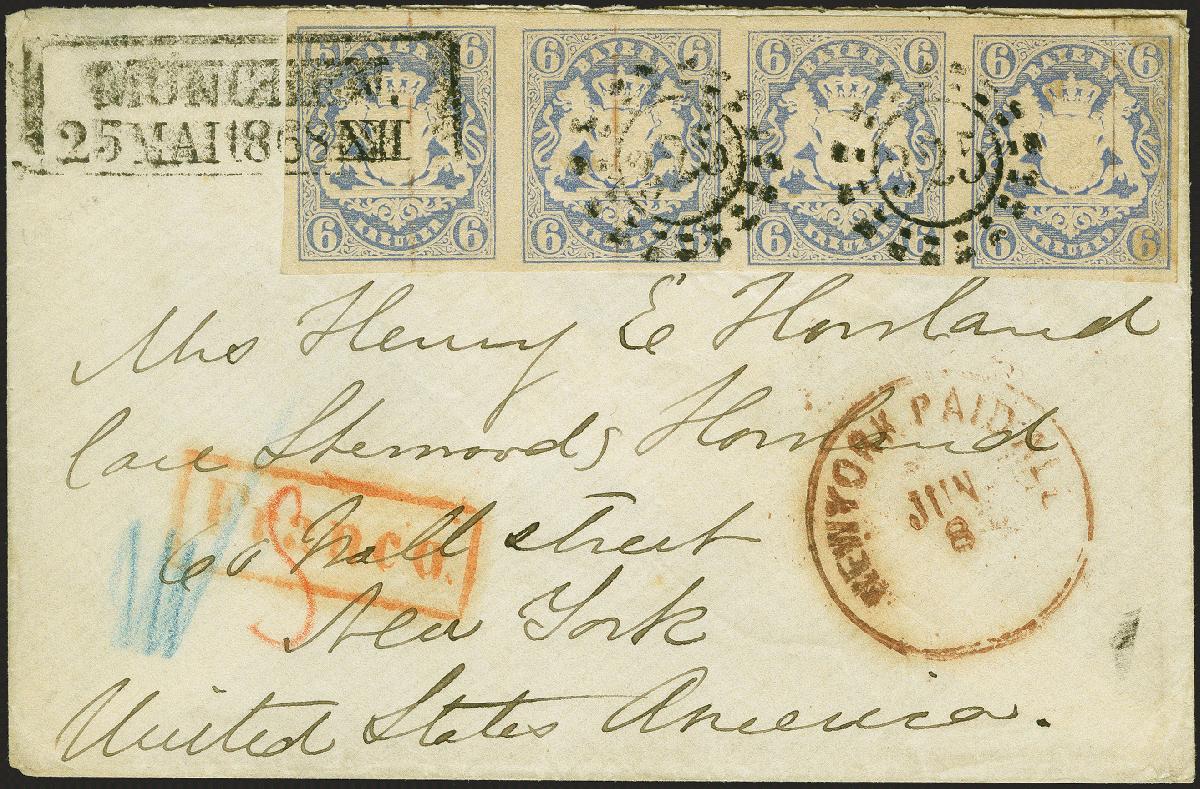 MÜNCHEN.
25 MAI 1868 XII
6 BAYERN 6
6 KREUZER 6
6 BAYERN 6
6 KREUZER 6
6 BAYERN 6
6 KREUZER 6
6 BAYERN 6
6 KREUZER 6
325
325
Mrs Henry E Howland
Care Howland
60 Wall street
New York
United States America.
Franco.
NEW YORK PAID ALL
JUN
8